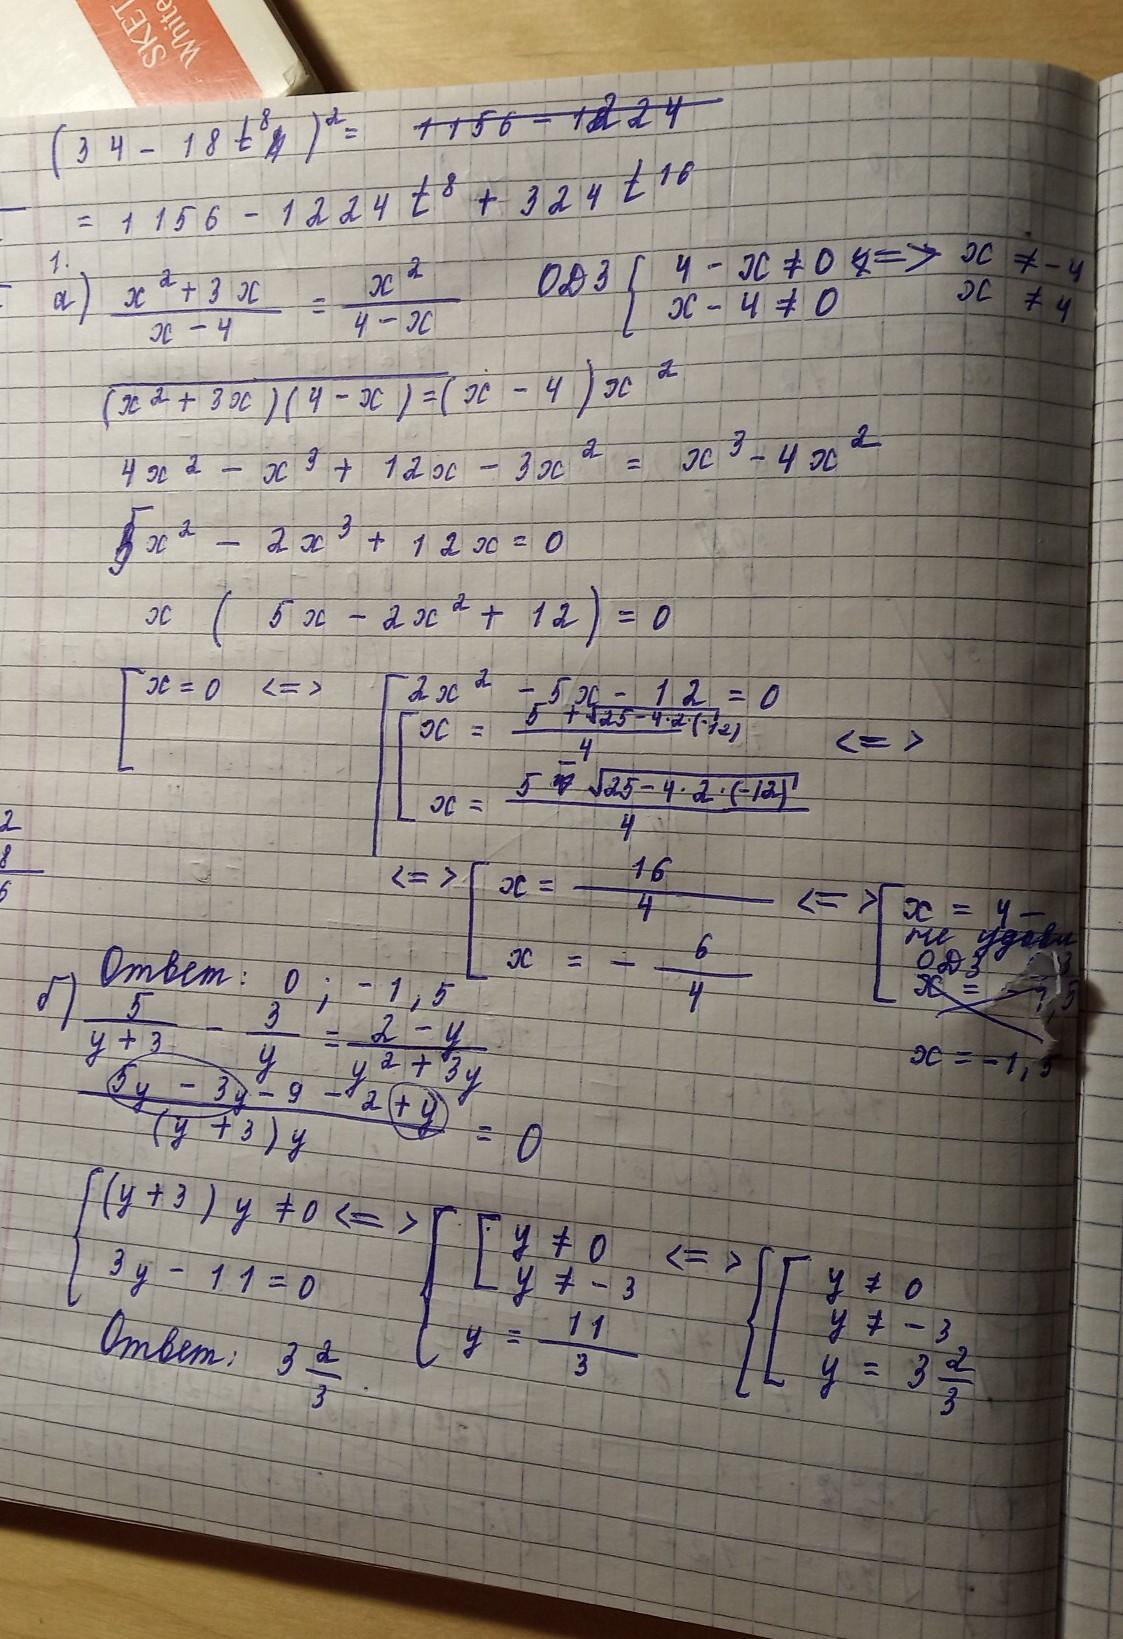 SKET
White
(34 - 18t⁸)² = 1156 - 1224
= 1156 - 1224t⁸ + 324t¹⁶
1.
а) (x² + 3x)/(x - 4) = x²/(4 - x) ОДЗ { 4 - x ≠ 0 <=> x ≠ -4
x - 4 ≠ 0 x ≠ 4
(x² + 3x)(4 - x) = (x - 4)x²
4x² - x³ + 12x - 3x² = x³ - 4x²
5x² - 2x³ + 12x = 0
x ( 5x - 2x² + 12) = 0
[ x = 0 <=> [ 2x² - 5x - 12 = 0
[ x = (5 + √25 - 4·2·(-12))/4 <=>
x = (5 - √25 - 4·2·(-12))/4
<=> [ x = 16/4 <=> [ x = 4 -
не удовл
ОДЗ
x = - 6/4 x =
x = -1,5
2
8
6
Ответ: 0; -1,5
б) 5/(y + 3) - 3/y = (2 - y)/(y² + 3y)
(5y - 3y - 9 - 2 + y)/((y + 3)y) = 0
{ (y + 3) y ≠ 0 <=> { [ y ≠ 0 <=> { [ y ≠ 0
y ≠ -3 y ≠ -3
3y - 11 = 0 y = 11/3 y = 3 2/3
Ответ: 3 2/3.